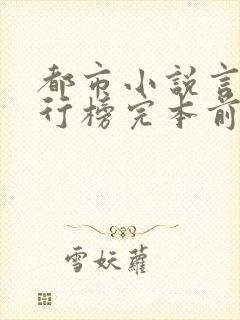 都市小説言
行榜完本前
雪妖蘿